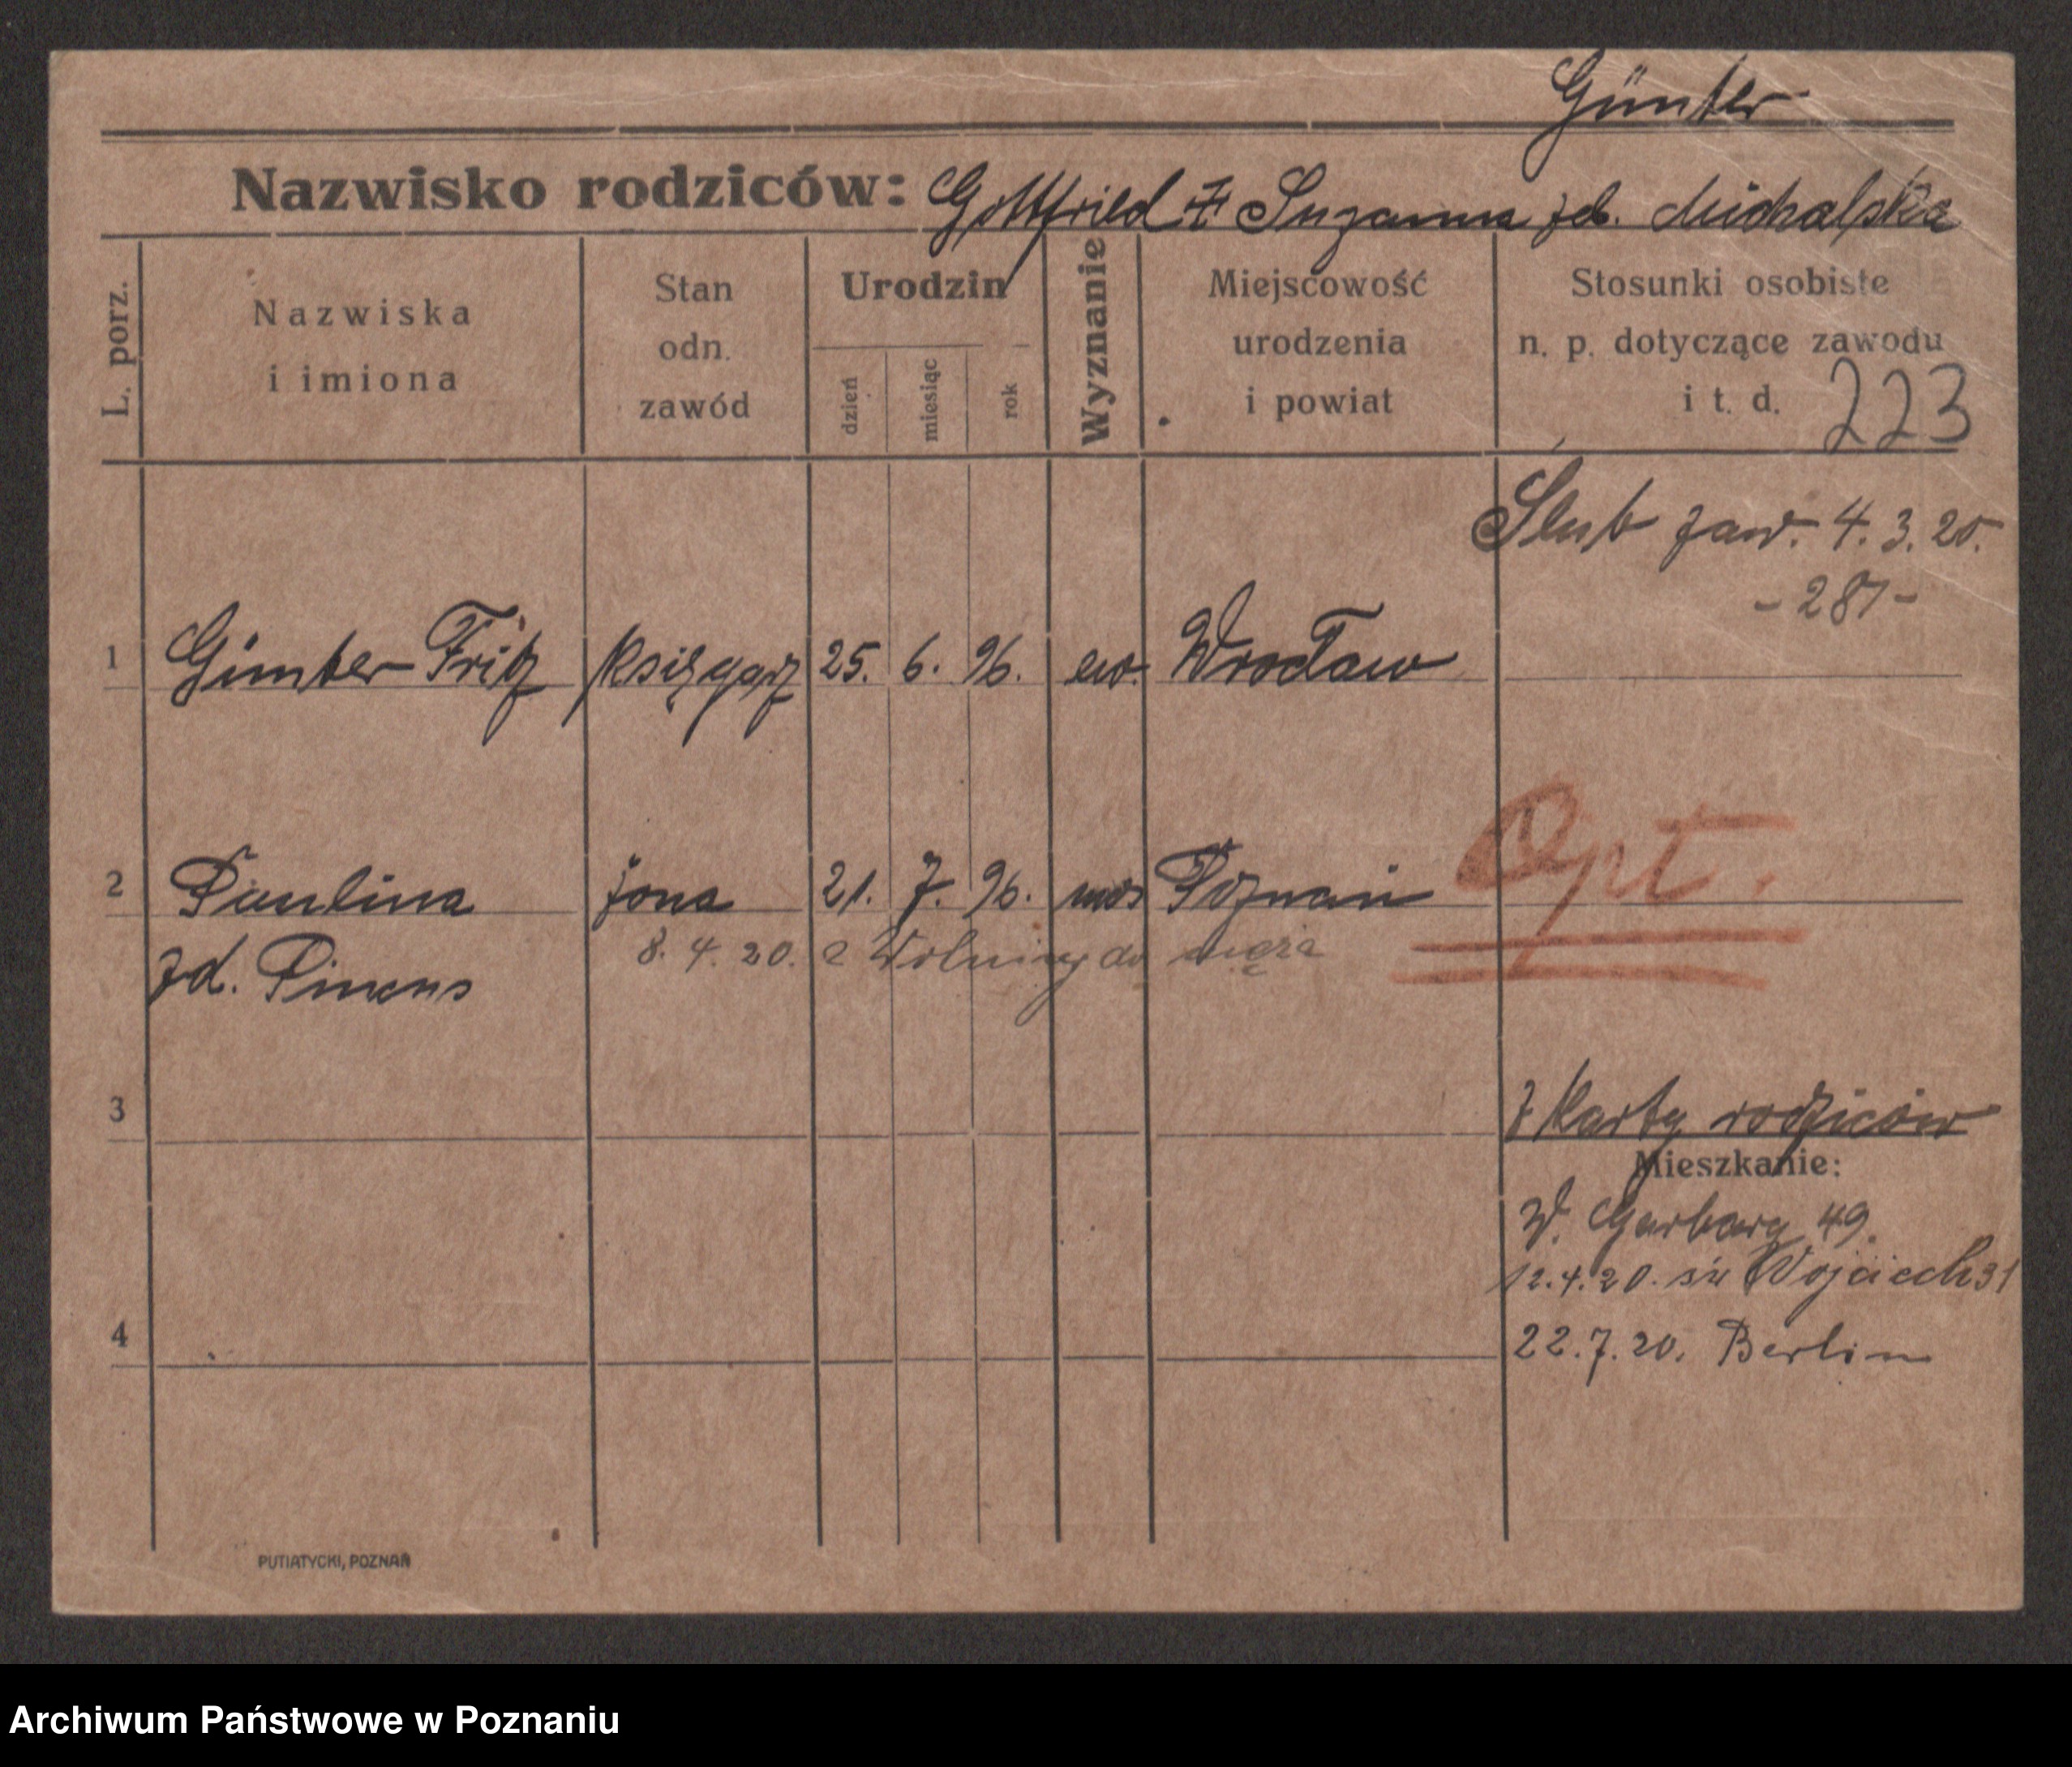 Günter
Nazwisko rodziców: Gottfried + Suzanna zd. Michalska
L. porz.
Nazwiska i imiona
Stan odn. zawód
Urodzin
dzień
miesiąc
rok
Wyznanie
Miejscowość urodzenia i powiat
Stosunki osobiste n. p. dotyczące zawodu i t. d. 223
Ślub zaw. 4.3.20.
- 281 -
1 Günter Fritz księgarz 25. 6. 96. ew. Wrocław
Opt.
2 Paulina żona 21. 7. 96. moż Poznań
8. 4. 20. z Wolnicy do męża
zd. Pincus
3
z karty rodziców
Mieszkanie:
W. Garbary 49.
12.4.20. św Wojciech 31
4
22.7.20. Berlin
PUTIATYCKI, POZNAŃ
Archiwum Państwowe w Poznaniu